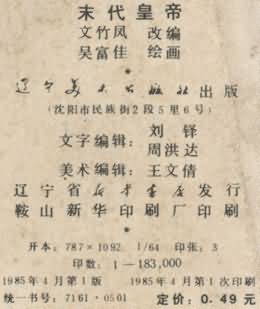 末代皇帝
文竹风 改编
吴富佳 绘画
辽宁美术出版社出版
(沈阳市民族街2段5里6号)
文字编辑: 刘铎
周洪达
美术编辑: 王文倩
辽宁省新华书店发行
鞍山新华印刷厂印刷
开本: 787×1092 1/64 印张: 3
印数: 1—183,000
1985年4月第1版 1985年4月第1次印刷
统一书号: 7161·0501 定价: 0.49元